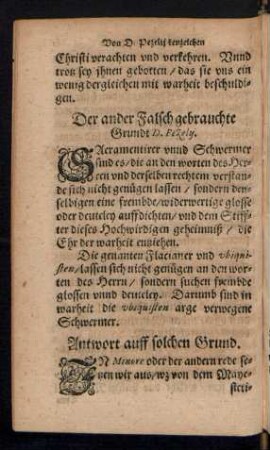 Von D. Pezelij kenzeichen
Christi verachten vnd verkehren. Vnnd
troꜩ sey jhnen gebotten / das sie vns ein
wenig dergleichen mit warheit beschuldi-
gen.
Der ander Falsch gebrauchte
Grundt D. Pezely.
SAcramentirer vnnd Schwermer
sind es / die an den worten des Her-
ren vnd derselben rechtem verstan-
de sich nicht genügen lassen / sondern den-
selbigen eine frembde / widerwertige glosse
oder deuteley auffdichten / vnd dem Stiff-
ter dieses Hochwirdigen geheimniß / die
Ehr der warheit entziehen.
Die genanten Flacianer vnd vbiqui-
sten / lassen sich nicht genügen an den wor-
ten des Herrn / sondern suchen frembde
glossen vnnd deuteley. Darumb sind in
warheit die vbiquisten arge verwegene
Schwermer.
Antwort auff solchen Grund.
IN Menore oder der andern rede se-
ꜩen wir aus / wz von dem Maye-
steti-